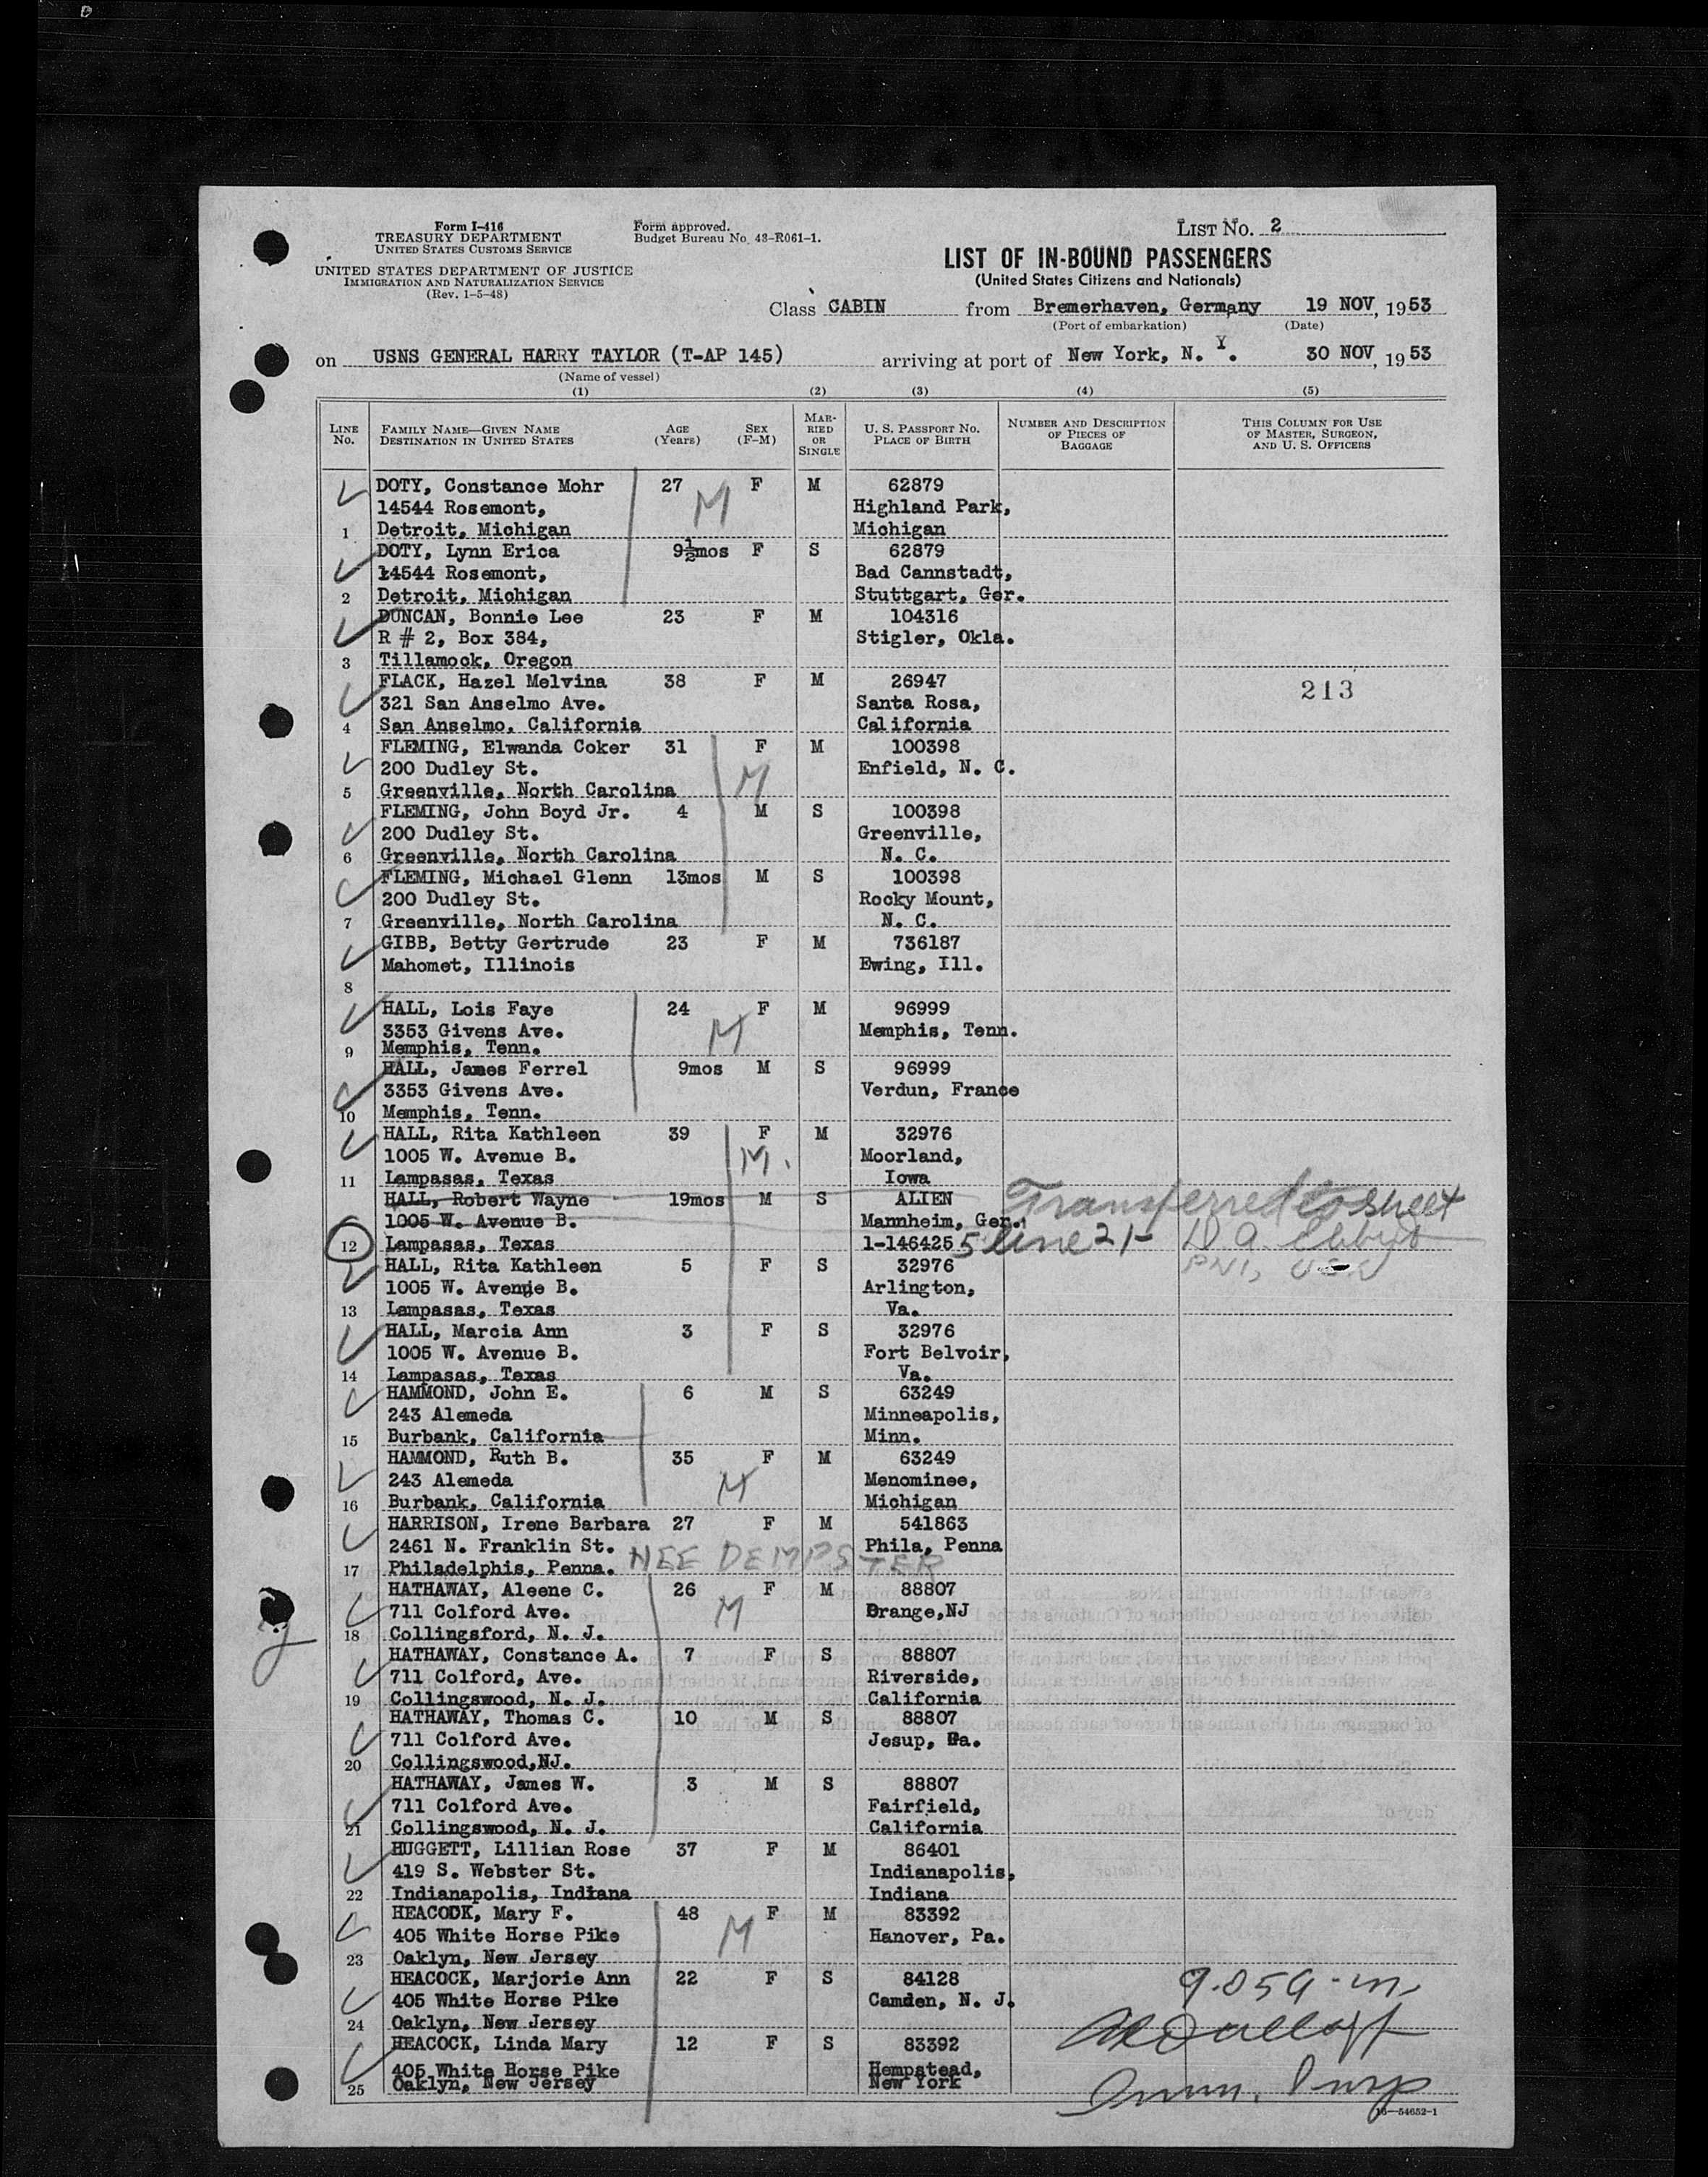 Form I-416
TREASURY DEPARTMENT
UNITED STATES CUSTOMS SERVICE
Form approved.
Budget Bureau No. 43-R061-1.
LIST NO. 2
UNITED STATES DEPARTMENT OF JUSTICE
IMMIGRATION AND NATURALIZATION SERVICE
(Rev. 1-5-48)
LIST OF IN-BOUND PASSENGERS
(United States Citizens and Nationals)
Class CABIN from Bremerhaven, Germany 19 NOV, 1953
(Port of embarkation) (Date)
on USNS GENERAL HARRY TAYLOR (T-AP 145) arriving at port of New York, N. Y. 30 NOV, 1953
(Name of vessel)
(1) (2) (3) (4) (5)
LINE No. FAMILY NAME—GIVEN NAME DESTINATION IN UNITED STATES AGE (Years) SEX (F-M) MARRIED OR SINGLE U. S. PASSPORT NO. PLACE OF BIRTH NUMBER AND DESCRIPTION OF PIECES OF BAGGAGE THIS COLUMN FOR USE OF MASTER, SURGEON, AND U. S. OFFICERS
DOTY, Constance Mohr 27 F M 62879
14544 Rosemont, M Highland Park,
1 Detroit, Michigan Michigan
DOTY, Lynn Erica 9½mos F S 62879
14544 Rosemont, Bad Cannstadt,
2 Detroit, Michigan Stuttgart, Ger.
DUNCAN, Bonnie Lee 23 F M 104316
R # 2, Box 384, Stigler, Okla.
3 Tillamook, Oregon
FLACK, Hazel Melvina 38 F M 26947 213
321 San Anselmo Ave. Santa Rosa,
4 San Anselmo, California California
FLEMING, Elwanda Coker 31 F M 100398
200 Dudley St. M Enfield, N. C.
5 Greenville, North Carolina
FLEMING, John Boyd Jr. 4 M S 100398
200 Dudley St. Greenville,
6 Greenville, North Carolina N. C.
FLEMING, Michael Glenn 13mos M S 100398
200 Dudley St. Rocky Mount,
7 Greenville, North Carolina N. C.
GIBB, Betty Gertrude 23 F M 736187
Mahomet, Illinois Ewing, Ill.
8
HALL, Lois Faye 24 F M 96999
3353 Givens Ave. M Memphis, Tenn.
9 Memphis, Tenn.
HALL, James Ferrel 9mos M S 96999
3353 Givens Ave. Verdun, France
10 Memphis, Tenn.
HALL, Rita Kathleen 39 F M 32976
1005 W. Avenue B. M. Moorland,
11 Lampasas, Texas Iowa
HALL, Robert Wayne 19mos M S ALIEN Transferred to sheet
1005 W. Avenue B. Mannheim, Ger.
12 Lampasas, Texas 1-146425 5 line 21- D. A.
HALL, Rita Kathleen 5 F S 32976
1005 W. Avenue B. Arlington,
13 Lampasas, Texas Va.
HALL, Marcia Ann 3 F S 32976
1005 W. Avenue B. Fort Belvoir,
14 Lampasas, Texas Va.
HAMMOND, John E. 6 M S 63249
243 Alemeda Minneapolis,
15 Burbank, California Minn.
HAMMOND, Ruth B. 35 F M 63249
243 Alemeda M Menominee,
16 Burbank, California Michigan
HARRISON, Irene Barbara 27 F M 541863
2461 N. Franklin St. NEE DEMPSTER Phila, Penna
17 Philadelphis, Penna.
HATHAWAY, Aleene C. 26 F M 88807
711 Colford Ave. M Orange,NJ
18 Collingsford, N. J.
HATHAWAY, Constance A. 7 F S 88807
711 Colford, Ave. Riverside,
19 Collingswood, N. J. California
HATHAWAY, Thomas C. 10 M S 88807
711 Colford Ave. Jesup, Ga.
20 Collingswood,NJ.
HATHAWAY, James W. 3 M S 88807
711 Colford Ave. Fairfield,
21 Collingswood, N. J. California
HUGGETT, Lillian Rose 37 F M 86401
419 S. Webster St. Indianapolis,
22 Indianapolis, Indiana Indiana
HEACOCK, Mary F. 48 F M 83392
405 White Horse Pike M Hanover, Pa.
23 Oaklyn, New Jersey
HEACOCK, Marjorie Ann 22 F S 84128
405 White Horse Pike Camden, N. J.
24 Oaklyn, New Jersey
HEACOCK, Linda Mary 12 F S 83392
405 White Horse Pike Hempstead,
25 Oaklyn, New Jersey New York
16—54652-1